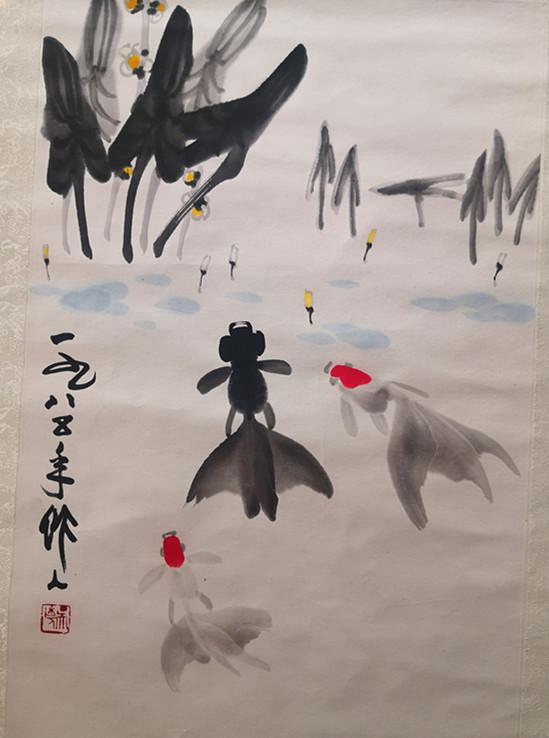 一九八五年作